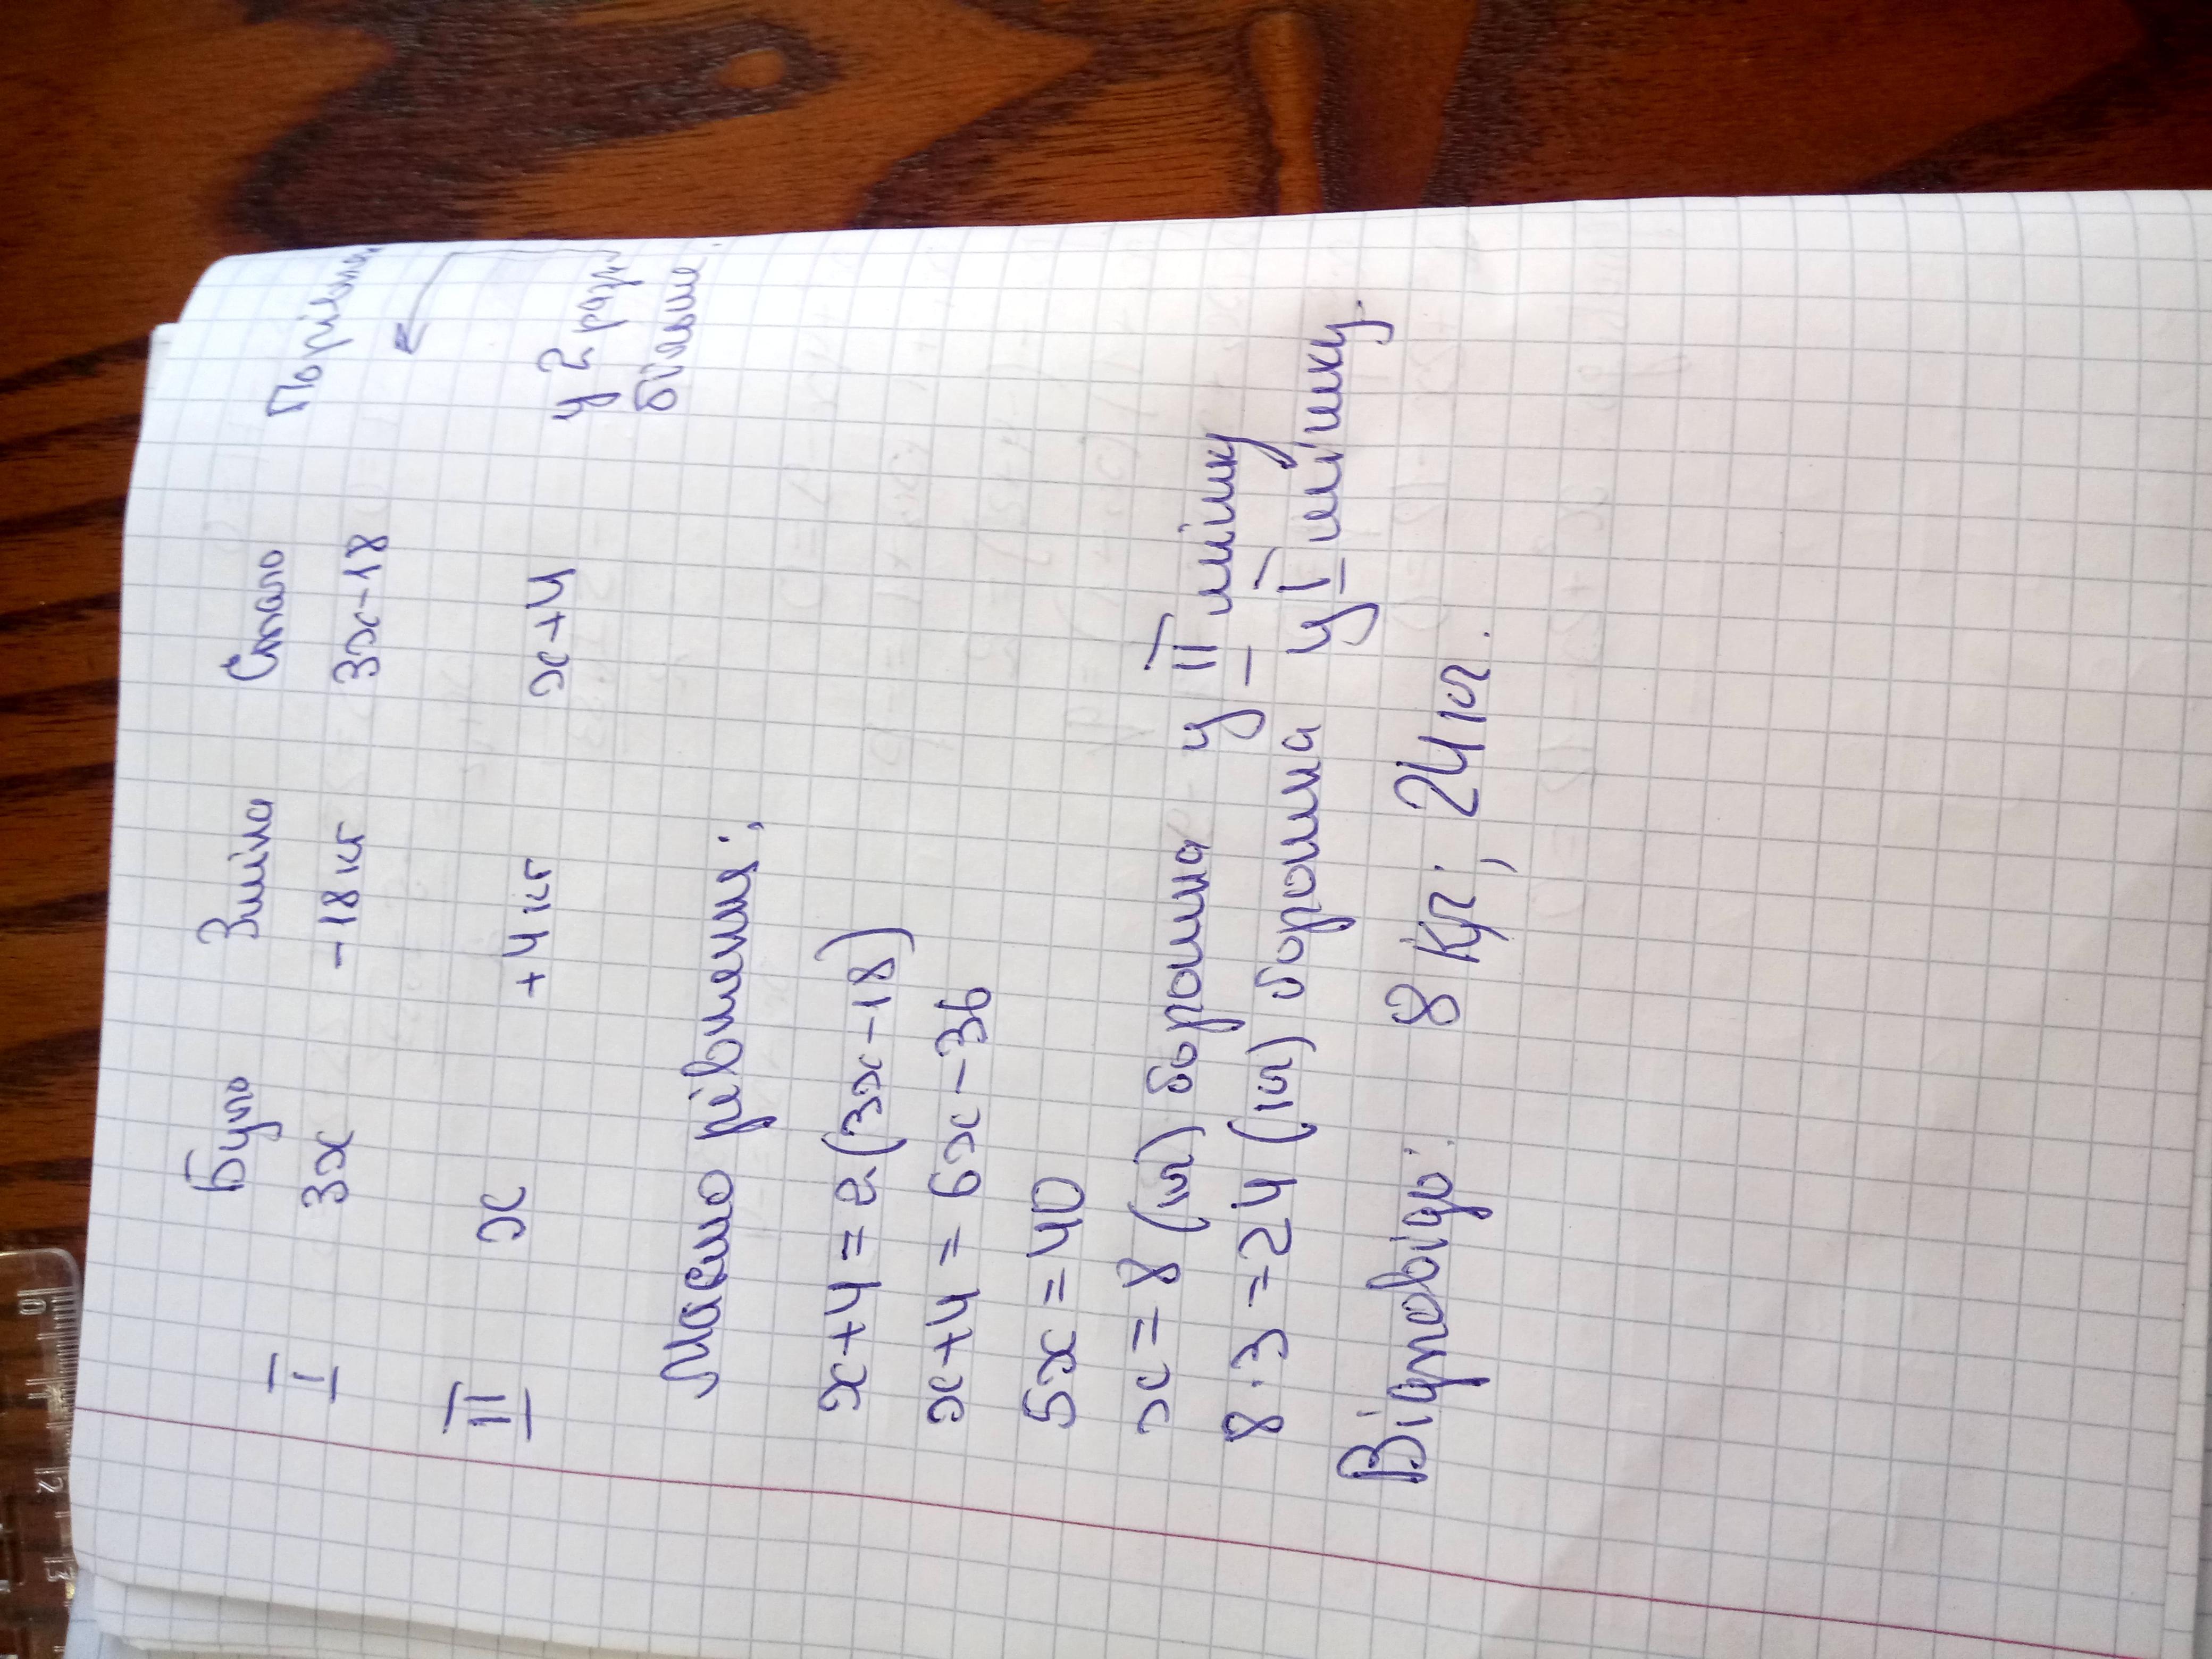 Було Зміна Стало Порівнян
I 3x -18 кг 3x-18
II x +4 кг x+4 у 2 рази
більше.
Маємо рівняння:
x+4=2(3x-18)
x+4=6x-36
5x=40
x=8 (кг) борошна - у II мішку
8·3=24 (кг) борошна у I мішку.
Відповідь: 8 кг; 24 кг.
0 1 2 3